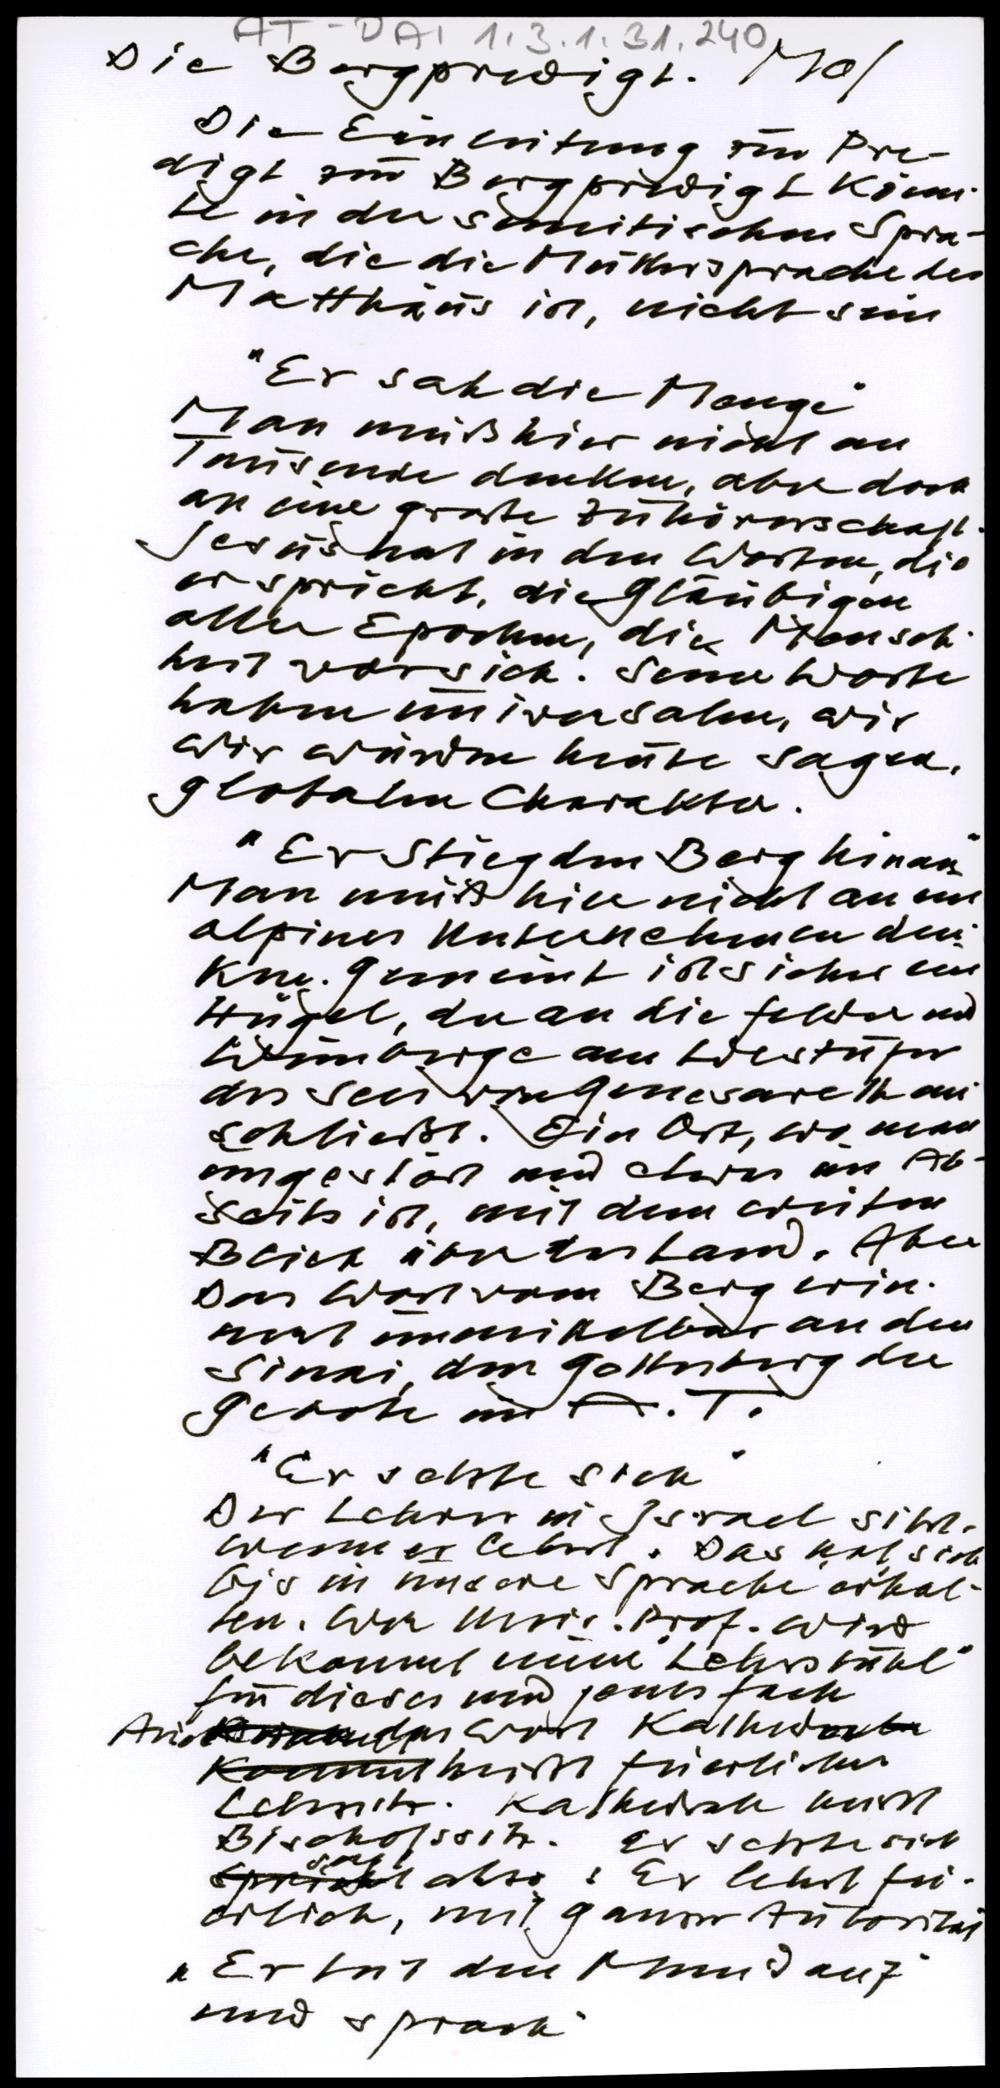 AT-DAI 1.3.1.31.240
Die Bergpredigt.
Die Einleitung zur Pre-
digt zur Bergpredigt könn-
te in der semitischen Spra-
che, die die Muttersprache des
Matthäus ist, nicht sein
"Er sah die Menge"
Man muß hier nicht an
Tausende denken, aber doch
an eine große Zuhörerschaft.
Jesus hat in den Worten, die
er spricht, die Gläubigen
aller Epochen, die Mensch-
heit vor sich. Seine Worte
haben universalen, wir
wir würden heute sagen,
globalen Charakter.
"Er stieg den Berg hinan"
Man muß hier nicht an ein
alpines Unternehmen den-
ken. Gemeint ist sicher ein
Hügel, der an die Felder und
Weinberge am Westufer
des Sees von Genesareth an
schließt. Ein Ort, wo man
ungestört und etwas im Ab-
seits ist, mit dem weiten
Blick über das Land. Aber
Das Wort vom Berg erin-
nert unmittelbar an den
Sinai, den Gottesberg der
Gebote im A.T.
"Er setzte sich"
Der Lehrer in Israel sitzt,
wenn er lehrt. Das hat sich
bis in unsere Sprache erhal-
ten. Wer Univ. Prof. wird
bekommt einen "Lehrstuhl"
für dieses und jenes Fach
Auch das Wort Katheder
heißt feierlicher
Lehrsitz. Kathedrale heißt
Bischofssitz. Er setzte sich
sagt also: Er lehrt fei-
erlich, mit ganzer Autorität
"Er tat den Mund auf
und sprach"